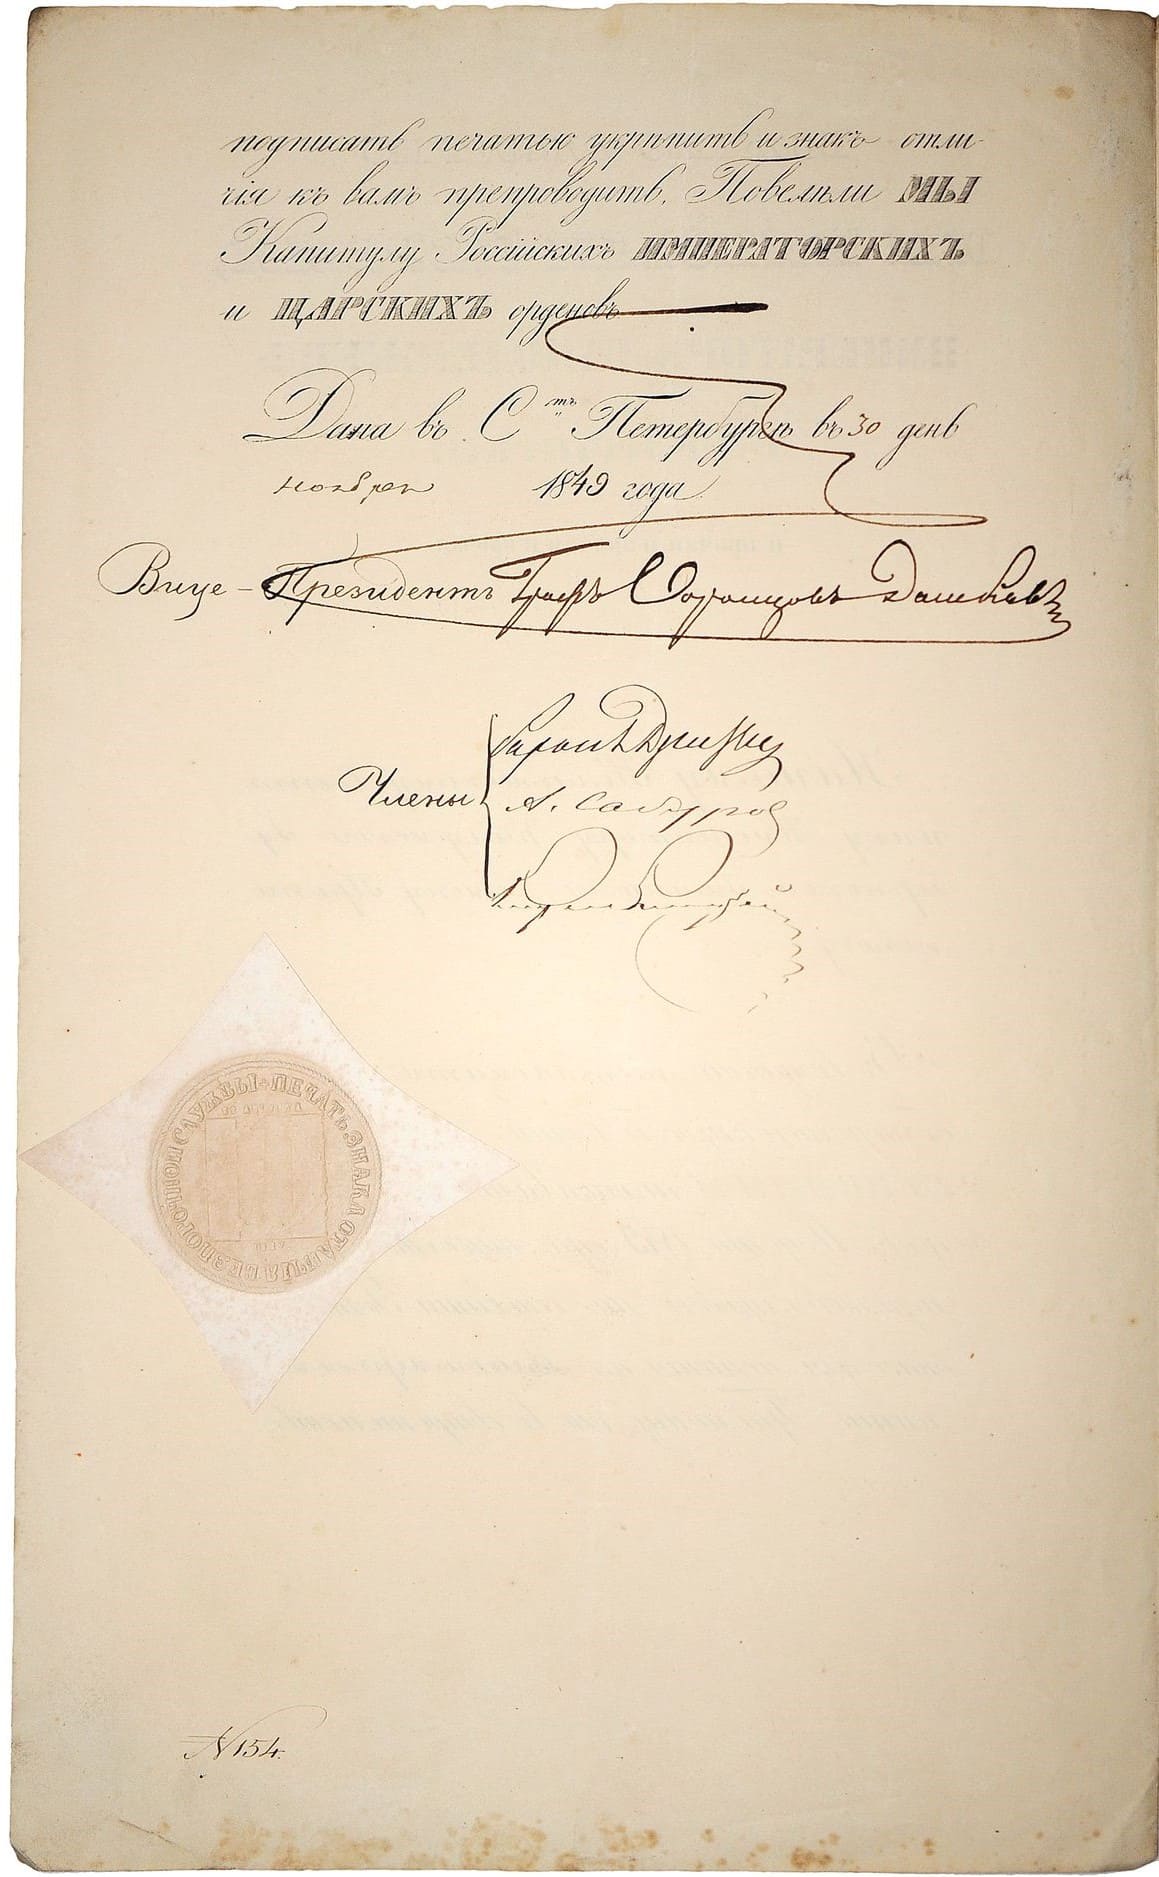 подписать печатью укрѣпить и знакъ отли-
чія къ вамъ препроводить. Повелѣли МЫ
Капитулу Россійскихъ ИМПЕРАТОРСКИХЪ
и ЦАРСКИХЪ орденовъ
Дана въ Стъ Петербургѣ въ 30 день
ноября 1849 года.
Вице-Президентъ Графъ Воронцовъ Дашковъ
Члены
А. Сабуров
ПЕЧАТЬ ЗНАКА ОТЛИЧІЯ БЕЗПОРОЧНОЙ СЛУЖБЫ
N 154.